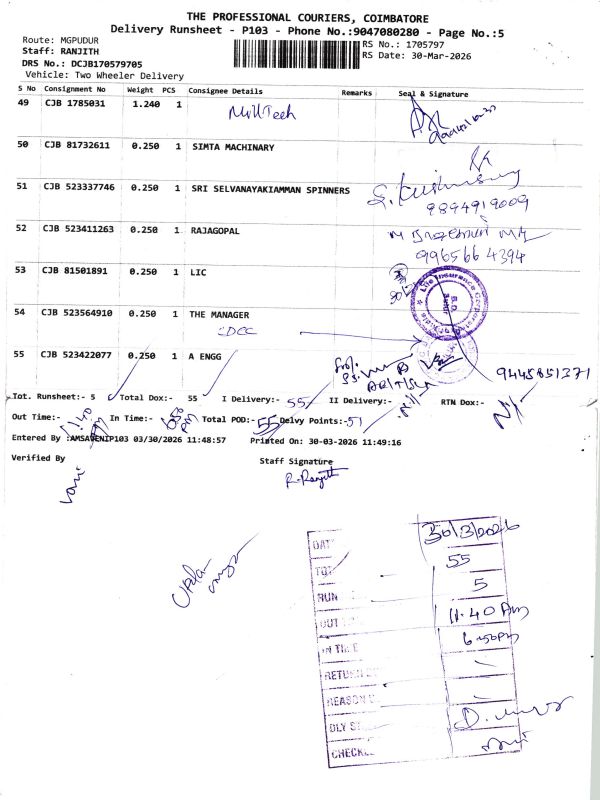 THE PROFESSIONAL COURIERS, COIMBATORE
Delivery Runsheet - P103 - Phone No.:9047080280 - Page No.:5
Route: MGPUDUR
RS No.: 1705797
Staff: RANJITH
RS Date: 30-Mar-2026
DRS No.: DCJB170579705
Vehicle: Two Wheeler Delivery
S No Consignment No Weight PCS Consignee Details Remarks Seal & Signature
49 CJB 1785031 1.240 1 MillTech
50 CJB 81732611 0.250 1 SIMTA MACHINARY
51 CJB 523337746 0.250 1 SRI SELVANAYAKIAMMAN SPINNERS
9894919009
52 CJB 523411263 0.250 1 RAJAGOPAL
99656 64394
53 CJB 81501891 0.250 1 LIC
Life Insurance Corporation
54 CJB 523564910 0.250 1 THE MANAGER
CDCC
55 CJB 523422077 0.250 1 A ENGG
9445851371
Tot. Runsheet:- 5 Total Dox:- 55 I Delivery:- 55 II Delivery:- Nil RTN Dox:- Nil
Out Time:- 11:40 Am In Time:- 6:50 pm Total POD:- 55 Delvy Points:-51
Entered By :AMSAVENIP103 03/30/2026 11:48:57 Printed On: 30-03-2026 11:49:16
Verified By Staff Signature
R. Ranjith
DAT 30/3/2026
TOT 55
RUN 5
OUT 11.40 Am
IN TIME 6.50pm
RETURN
REASON
DLY
CHECK